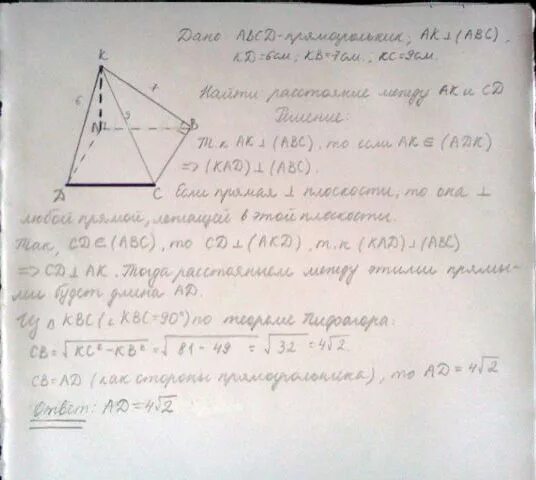 Дано ABCD-прямоугольник, AK⊥(ABC),
KD=6см; KB=7см., KC=9см.
Найти расстояние между AK и CD
Решение:
Т.к AK⊥(ABC), то если AK∈(ADK)
=> (KAD)⊥(ABC).
Если прямая ⊥ плоскости, то она ⊥
любой прямой, лежащей в этой плоскости.
Так, CD∈(ABC), то CD⊥(AKD), т.к (KAD)⊥(ABC)
=> CD⊥AK. Тогда расстоянием между этими прямы-
ми будет длина AD.
Из △KBC(∠KBC=90°) по теореме Пифагора:
CB=√KC²-KB²=√81-49=√32=4√2
CB=AD (как стороны прямоугольника), то AD=4√2
Ответ: AD=4√2
K
6
9
7
A
B
D
C